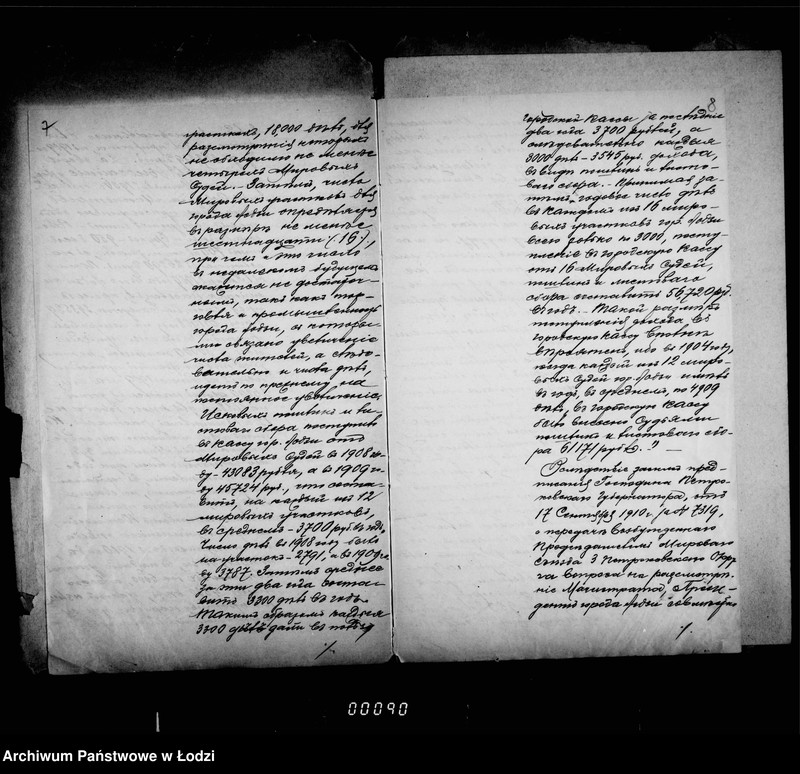 7
участках, 18,000 дѣлъ, для
разсмотрѣнія которыхъ
необходимо не менѣе
четырехъ Мировыхъ
Судей. Затѣмъ, число
Мировыхъ участковъ для
города Лодзи опредѣляется
въ размѣрѣ не менѣе
шестнадцати (16),
при чемъ и это число
въ недалекомъ будущемъ
окажется не достаточ-
нымъ, такъ какъ тор-
говля и промышленность
города Лодзи, съ которы-
ми связано увеличеніе
числа жителей, а слѣдо-
вательно и числа дѣлъ,
идетъ по прежнему на
постоянное увеличеніе
Исковыхъ пошлинъ и ли-
стоваго сбора поступило
въ кассу гор. Лодзи отъ
Мировыхъ Судей въ 1908 го-
ду - 43083 рубля, а въ 1909 го-
ду 45724 руб., что соста-
витъ, на каждый изъ 12
мировыхъ участковъ,
въ среднемъ - 3700 руб. въ годъ.
Число дѣлъ въ 1908 году было
на участокъ - 2791, а въ 1909 го-
ду 3787. Затѣмъ среднее
за эти два года соста-
витъ 3300 дѣлъ въ годъ.
Такимъ образомъ каждыя
3300 дѣлъ дали въ
8
городской кассы за послѣдніе
два года 3700 рублей, а
слѣдовательно каждыя
3000 дѣлъ - 3545 руб. дохода,
въ видѣ пошлинъ и листо-
ваго сбора. - Принимая за-
тѣмъ годовое число дѣлъ
въ каждомъ изъ 16 миро-
выхъ участковъ гор. Лодзи
всего только по 3000, посту-
пленіе въ городскую кассу
отъ 16 Мировыхъ Судей,
пошлинъ и листоваго
сбора составитъ 56,720 руб.
въ годъ. - Такой размѣръ
поступленія дохода въ
городскую кассу вполнѣ
ибо въ 1904 году,
когда каждый изъ 12 миро-
выхъ Судей гор. Лодзи имѣлъ
въ годъ, въ среднемъ, по 4909
дѣлъ, въ городскую кассу
было внесено Судьями
пошлинъ и листоваго сбо-
ра 61171 рубль. -
Вслѣдствіе занятія пред-
писанія Господина Петро-
ковскаго Губернатора, отъ
17 Сентября 1910 г. за № 7319,
о передачѣ возбужденнаго
Предсѣдателемъ Мирового
Съѣзда 3 Петроковскаго Окру-
га вопроса на разсмотрѣ-
ніе Магистрата, Прези-
дентъ города Лодзи
00090
Archiwum Państwowe w Łodzi